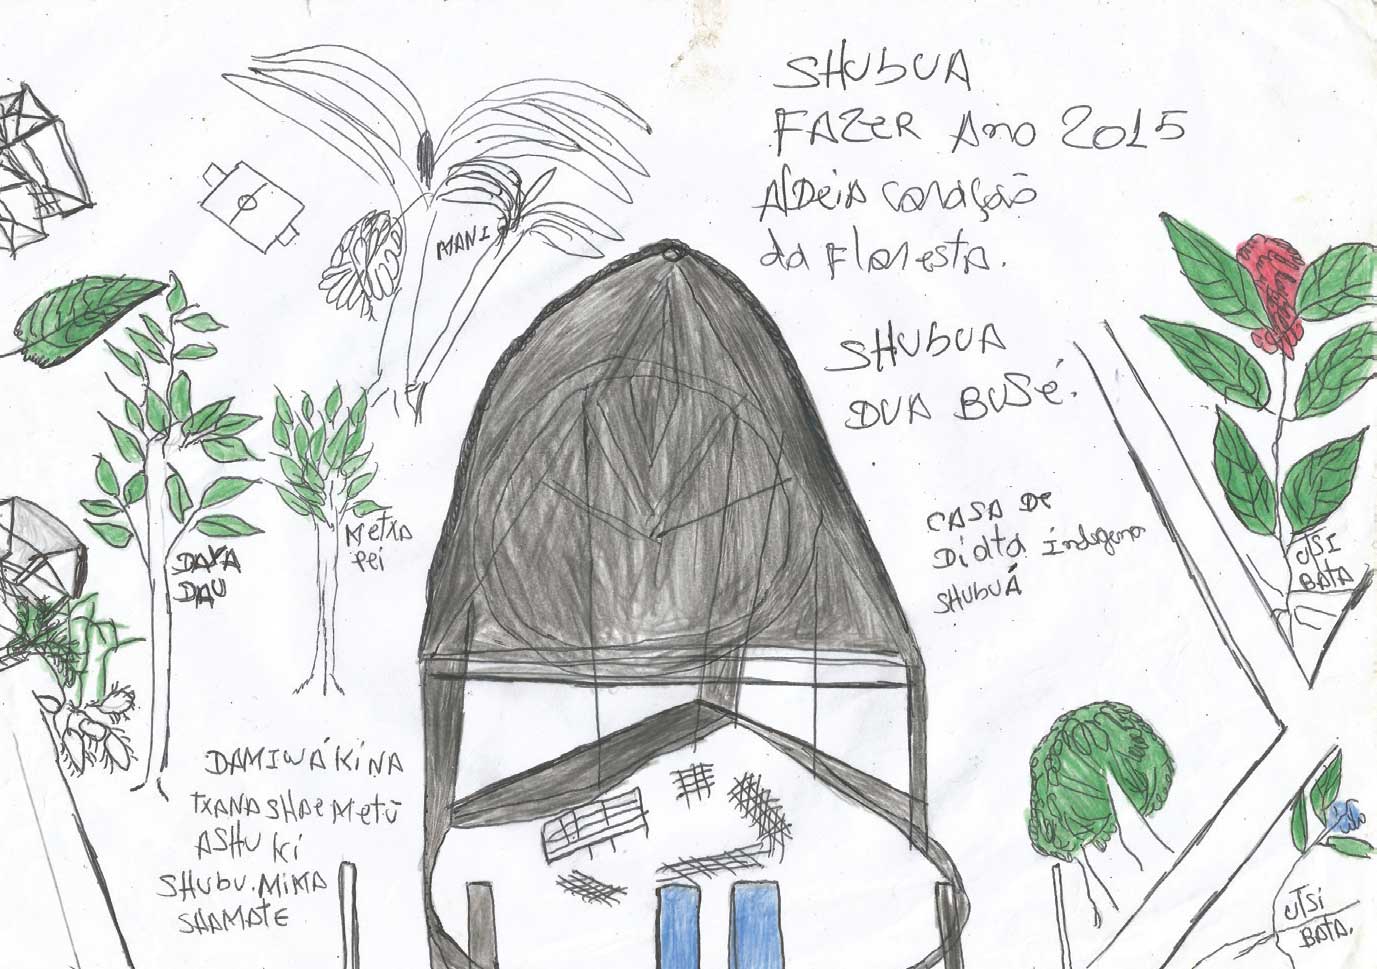 SHUbUA
FAZER Ano 2015
ALDEiA CORAção
da Floresta.
SHUbUA
DUA BUSÉ.
CASA DE
Diatá indegena
SHUbUÁ
MANI
DAKA
DAU
METXA
PEi
UTSI
BATA
DAMIWÁ KÍNA
TXANA SHAE METŨ
ASHU KÍ
SHUBU. MIMA
SHAMATE
UTSi
BATA.